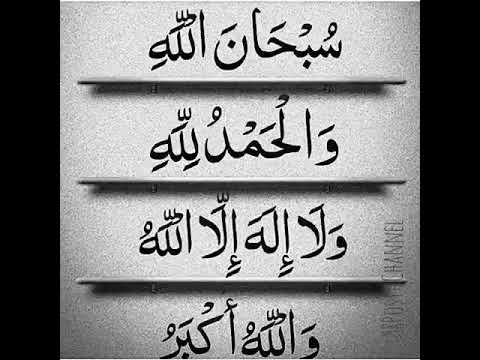 سُبْحَانَ اللّٰهِ
وَالْحَمْدُ لِلّٰهِ
وَلَا إِلَهَ إِلَّا اللّٰهُ
وَاللّٰهُ أَكْبَرُ
CHANNEL